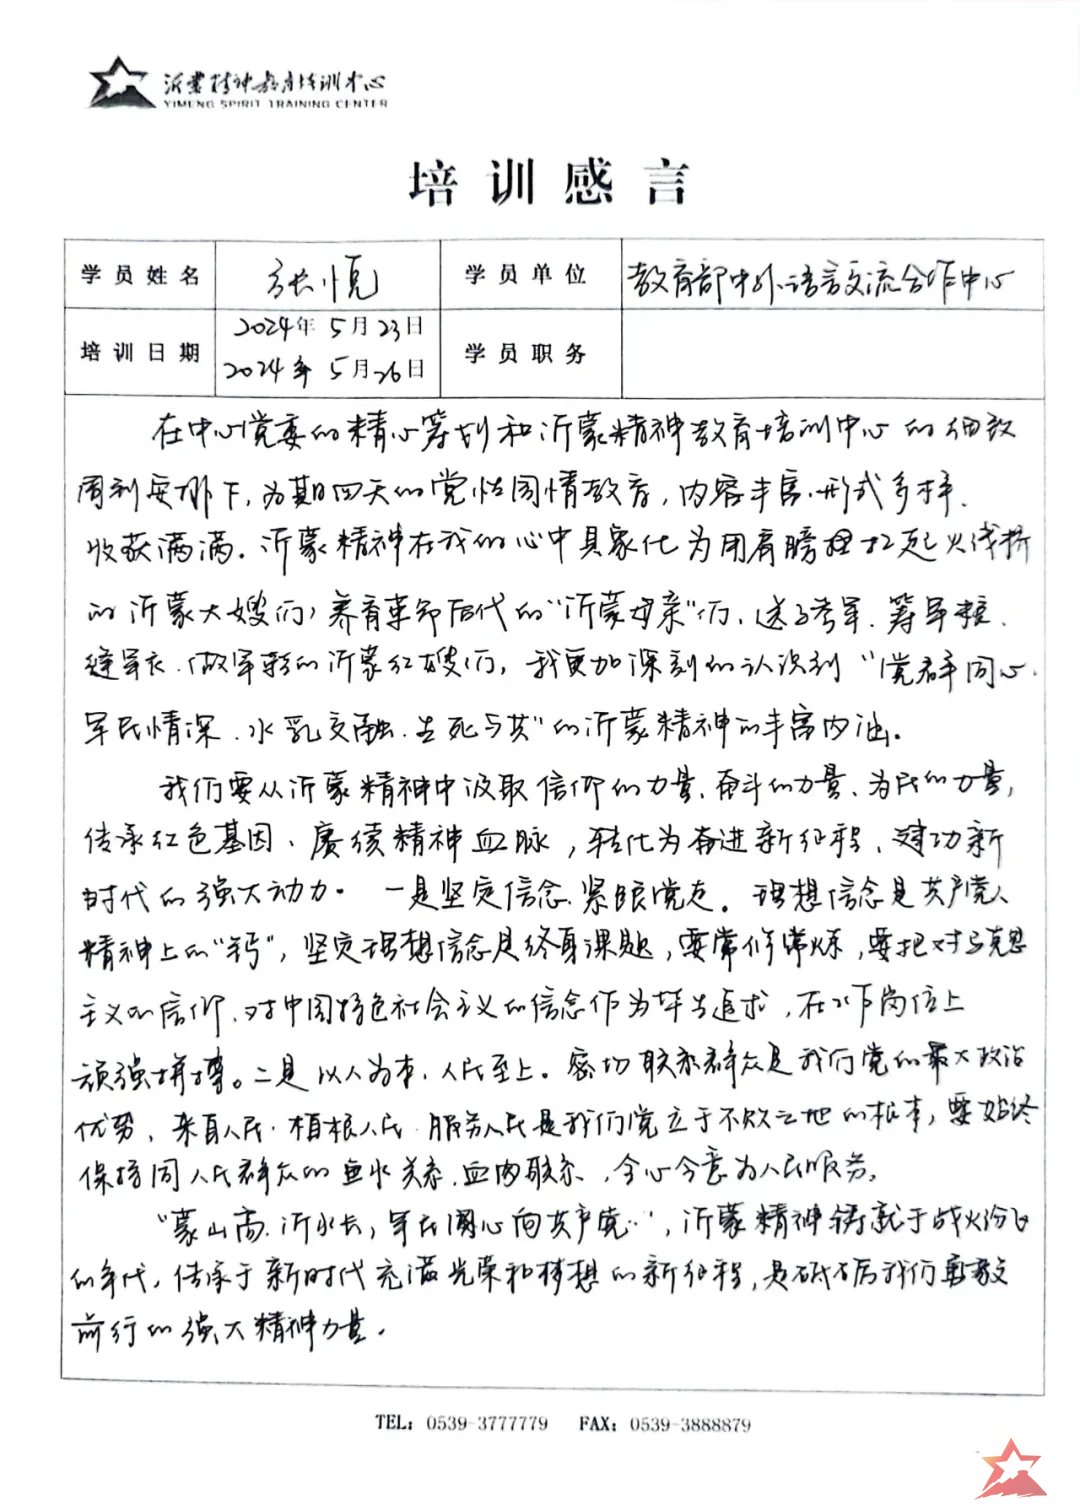 沂蒙精神教育培训中心
YIMENG SPIRIT TRAINING CENTER
培训感言
学员姓名 张悦 学员单位 教育部中外语言交流合作中心
培训日期 2024年5月23日
2024年5月26日 学员职务
在中心党委的精心筹划和沂蒙精神教育培训中心的细致
周到安排下,为期四天的党性国情教育,内容丰富、形式多样、
收获满满。沂蒙精神在我的心中具象化为用肩膀扛起火线桥
的沂蒙大嫂们,养育革命后代的“沂蒙母亲”们、送子参军、筹军粮、
缝军衣、做军鞋的沂蒙红嫂们,我更加深刻的认识到“党群同心、
军民情深、水乳交融、生死与共”的沂蒙精神的丰富内涵。
我们要从沂蒙精神中汲取信仰的力量、奋斗的力量、为民的力量,
传承红色基因、赓续精神血脉,转化为奋进新征程、建功新
时代的强大动力。一是坚定信念、紧跟党走。理想信念是共产党人
精神上的“钙”,坚定理想信念是终身课题,要常修常炼,要把对马克思
主义的信仰、对中国特色社会主义的信念作为毕生追求,在以下岗位上
顽强拼搏。二是以人为本、人民至上。密切联系群众是我们党的最大政治
优势、来自人民、植根人民、服务人民是我们党立于不败之地的根本,要始终
保持同人民群众的鱼水关系、血肉联系、全心全意为人民服务。
“蒙山高、沂水长,军民同心向共产党…”,沂蒙精神铸就于战火纷飞
的年代,传承于新时代充满光荣和梦想的新征程,是砥砺我们勇敢
前行的强大精神力量。
TEL: 0539-3777779 FAX: 0539-3888879